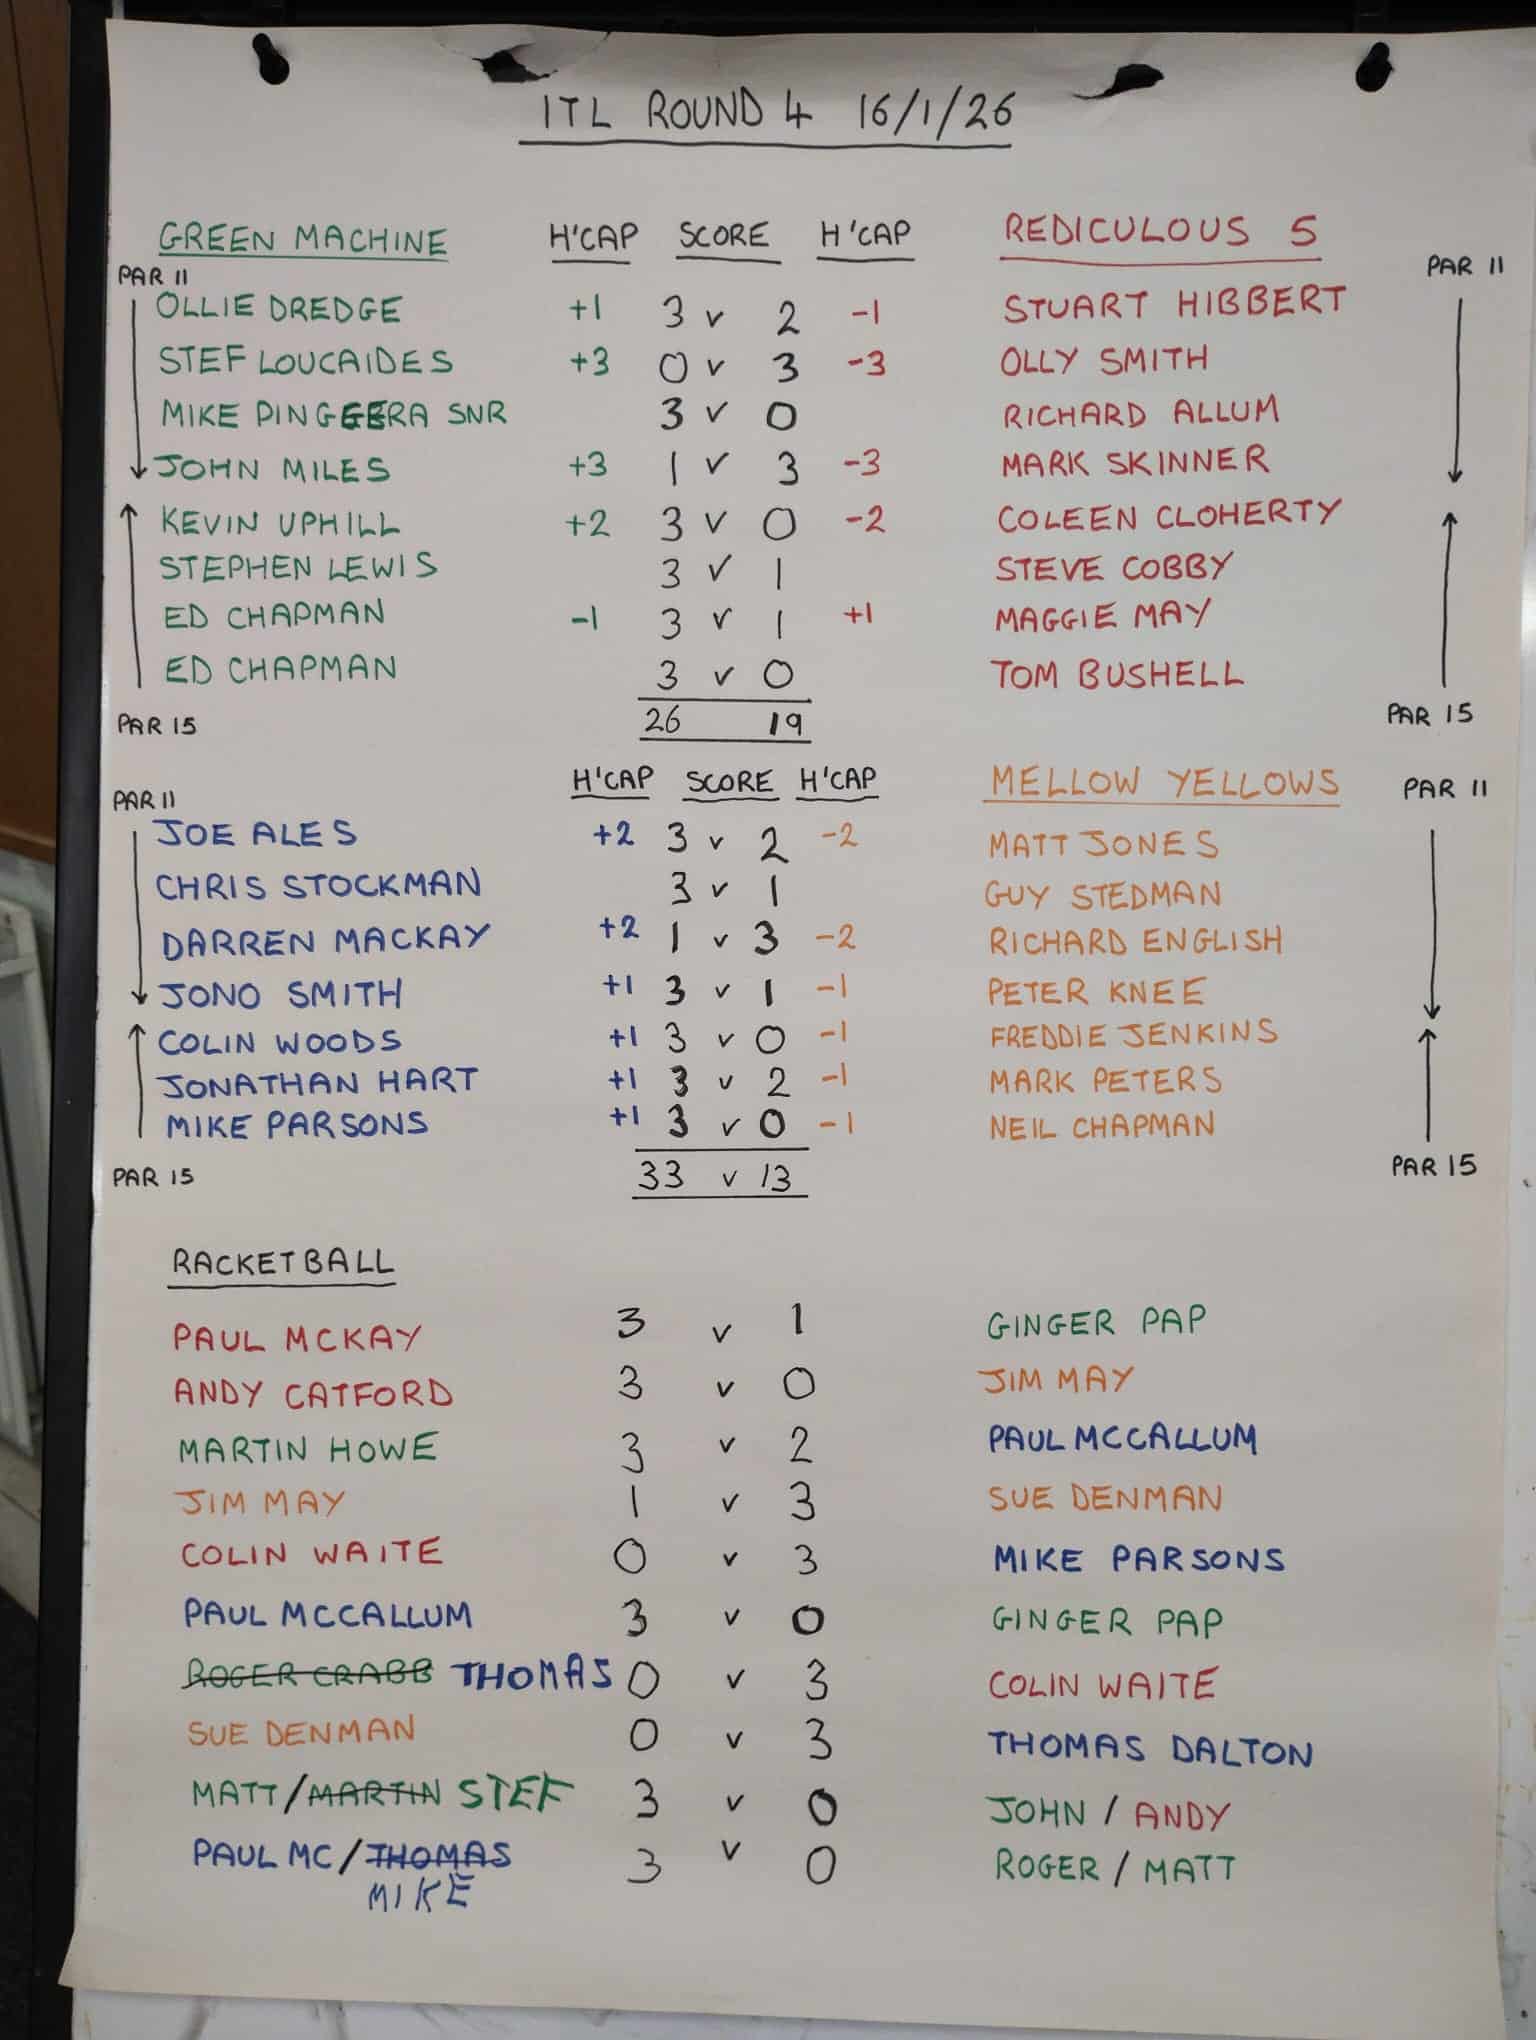 ITL ROUND 4 16/1/26
GREEN MACHINE H'CAP SCORE H'CAP REDICULOUS 5
PAR 11 PAR 11
OLLIE DREDGE +1 3 v 2 -1 STUART HIBBERT
STEF LOUCAIDES +3 0 v 3 -3 OLLY SMITH
MIKE PINGGERA SNR 3 v 0 RICHARD ALLUM
JOHN MILES +3 1 v 3 -3 MARK SKINNER
KEVIN UPHILL +2 3 v 0 -2 COLEEN CLOHERTY
STEPHEN LEWIS 3 v 1 STEVE COBBY
ED CHAPMAN -1 3 v 1 +1 MAGGIE MAY
ED CHAPMAN 3 v 0 TOM BUSHELL
PAR 15 26 19 PAR 15
H'CAP SCORE H'CAP MELLOW YELLOWS
PAR 11 PAR 11
JOE ALES +2 3 v 2 -2 MATT JONES
CHRIS STOCKMAN 3 v 1 GUY STEDMAN
DARREN MACKAY +2 1 v 3 -2 RICHARD ENGLISH
JONO SMITH +1 3 v 1 -1 PETER KNEE
COLIN WOODS +1 3 v 0 -1 FREDDIE JENKINS
JONATHAN HART +1 3 v 2 -1 MARK PETERS
MIKE PARSONS +1 3 v 0 -1 NEIL CHAPMAN
PAR 15 33 v 13 PAR 15
RACKETBALL
PAUL MCKAY 3 v 1 GINGER PAP
ANDY CATFORD 3 v 0 JIM MAY
MARTIN HOWE 3 v 2 PAUL MCCALLUM
JIM MAY 1 v 3 SUE DENMAN
COLIN WAITE 0 v 3 MIKE PARSONS
PAUL MCCALLUM 3 v 0 GINGER PAP
ROGER CRABB THOMAS 0 v 3 COLIN WAITE
SUE DENMAN 0 v 3 THOMAS DALTON
MATT/MARTIN STEF 3 v 0 JOHN / ANDY
PAUL MC/THOMAS 3 v 0 ROGER / MATT
MIKE